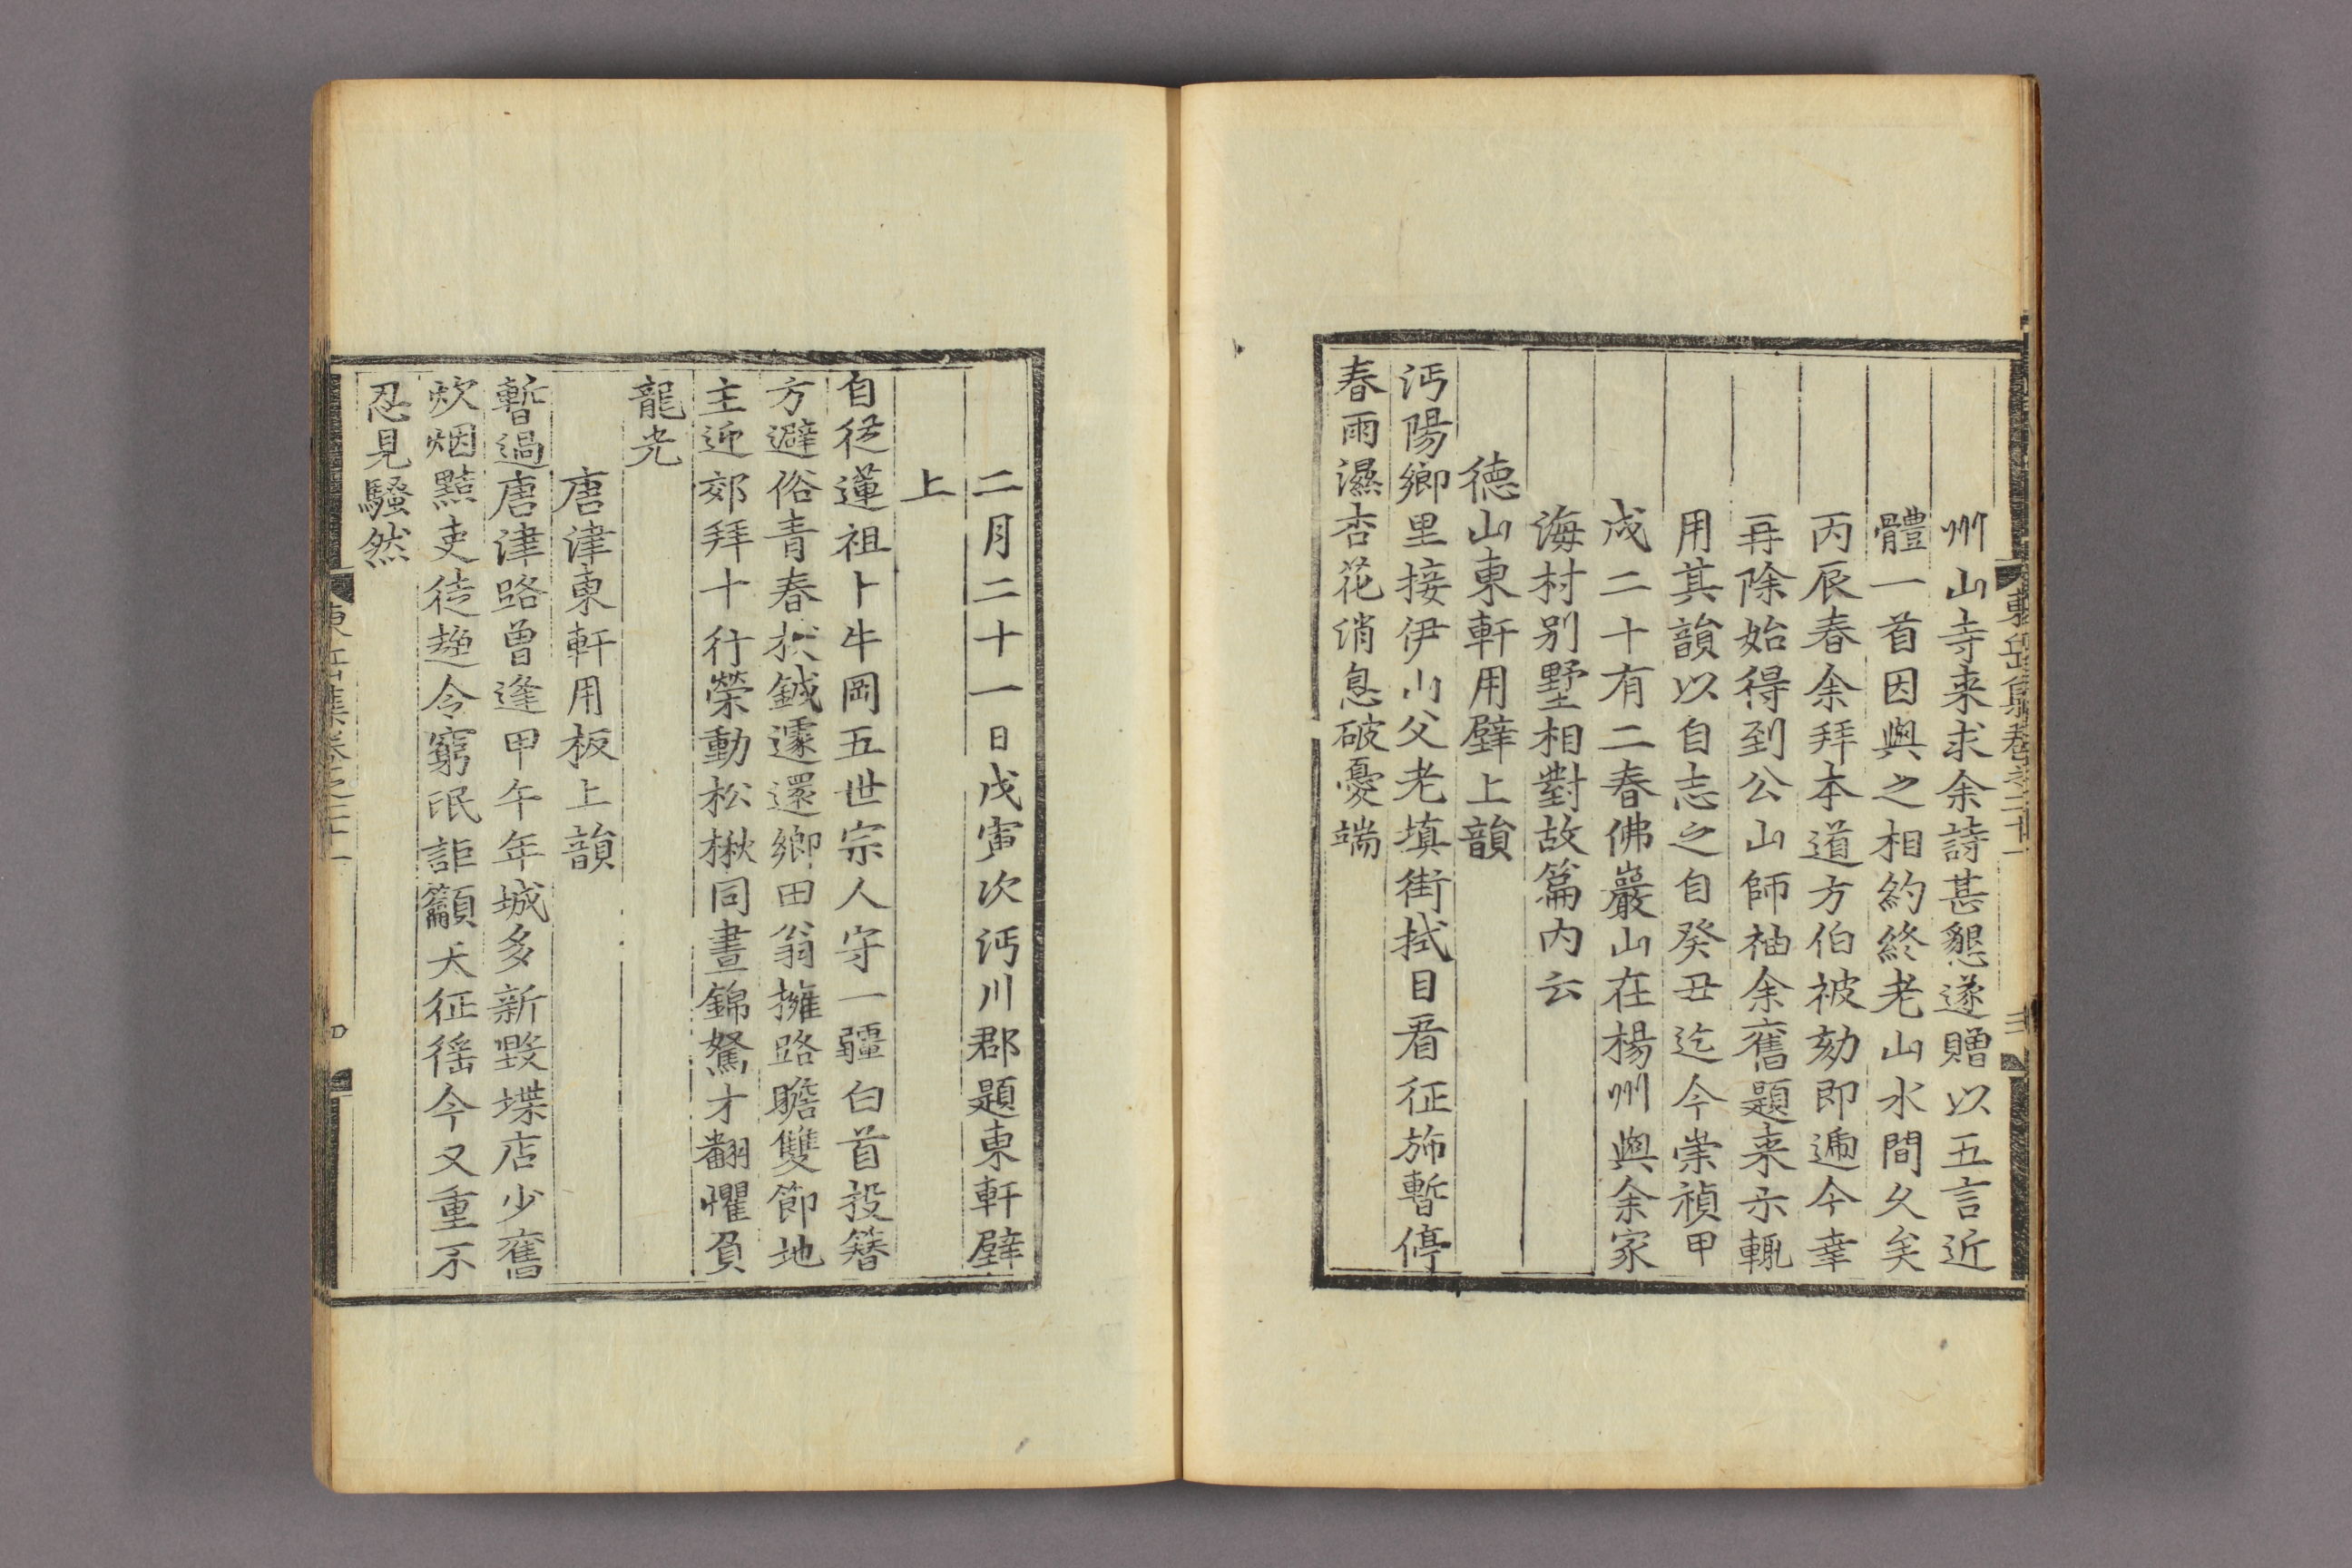 東岳集卷之二十一
三
州山寺来求余詩甚懇遂贈以五言近
體一首因與之相約終老山水間久矣
丙辰春余拜本道方伯被劾即遞今幸
再除始得到公山師袖余舊題来示輒
用其韻以自志之自癸丑迄今崇禎甲
戌二十有二春佛巖山在楊州與余家
海村别墅相對故篇內云
德山東軒用壁上韻
沔陽鄉里接伊山父老填街拭目看征斾暫停
春雨濕杏花消息破憂端
二月二十一日戊寅次沔川郡題東軒壁
上
自從蓮祖卜牛岡五世宗人守一疆白首投簪
方避俗青春杖鉞遽還鄉田翁擁路瞻雙節地
主迎郊拜十行榮動松楸同晝錦駑才翻懼負
龍光
唐津東軒用板上韻
暫過唐津路曾逢甲午年城多新毀堞店少舊
炊烟黠吏徒趨令窮氓詎籲天征徭今又重不
忍見騷然
東岳集卷之二十一
四